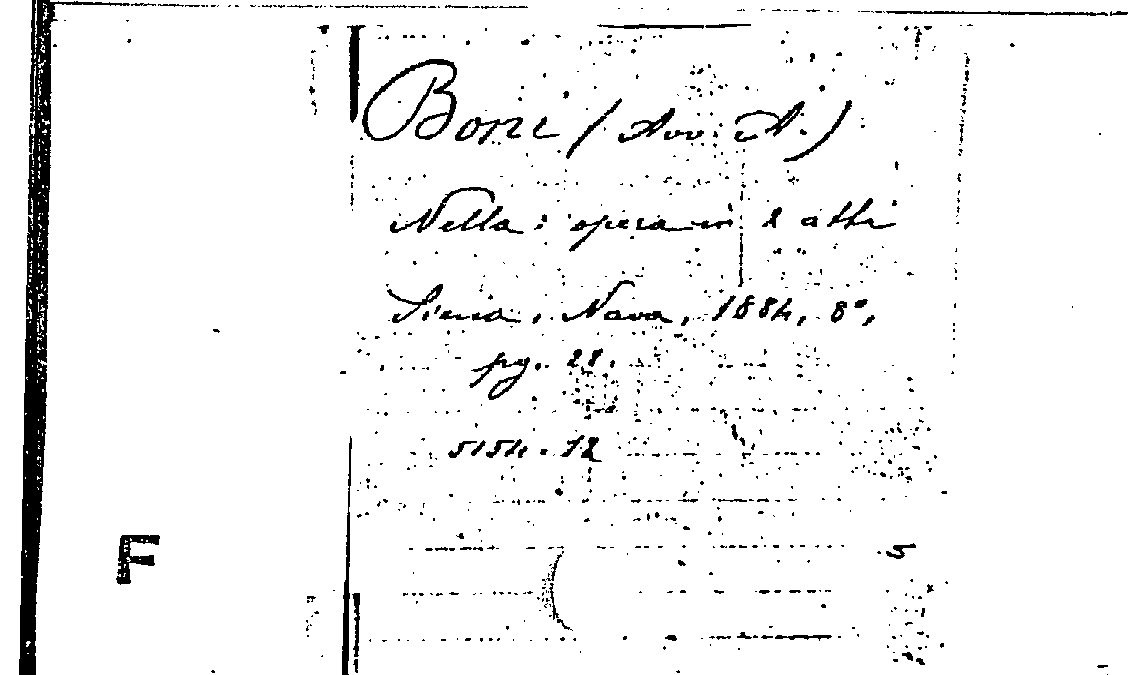 Boni (Avv. A.)
Nella: opera in 2 atti
Siena, Nava, 1884, 8°,
pg. 28.
5154.12
5
F